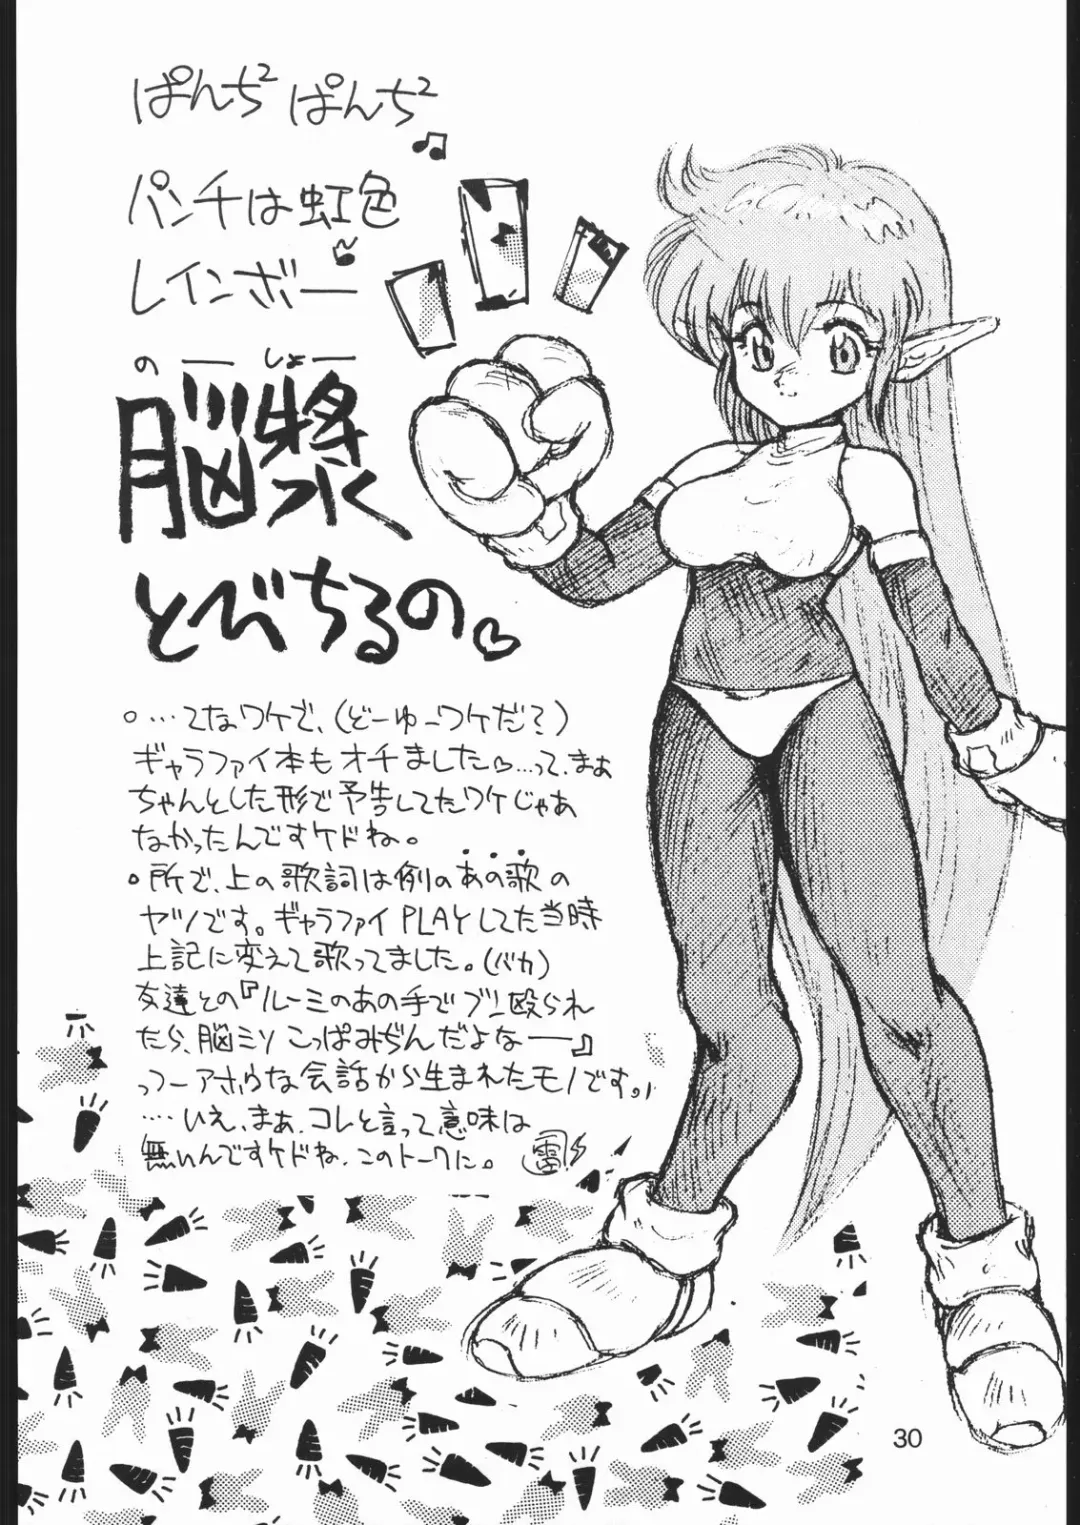 ぱんち² ぱんち²♪
パンチは虹色
レインボー
のーしょー
脳漿
とびちるの♡
○…てなワケで、(どーゆーワケだ?)
ギャラファイ本もオチました♡…って、まぁ
ちゃんとした形で予告してたワケじゃあ
なかったんですケドね。
○所で、上の歌詞は例のあの歌の
ヤツです。ギャラファイPLAYしてた当時
上記に変えて歌ってました。(バカ)
友達との『ルーミのあの手でブン殴られ
たら、脳ミソこっぱみぢんだよなー』
っつーアホゥな会話から生まれたモノです。
…いえ、まぁ、コレと言って意味は
無いんですケドね、このトークに。
30